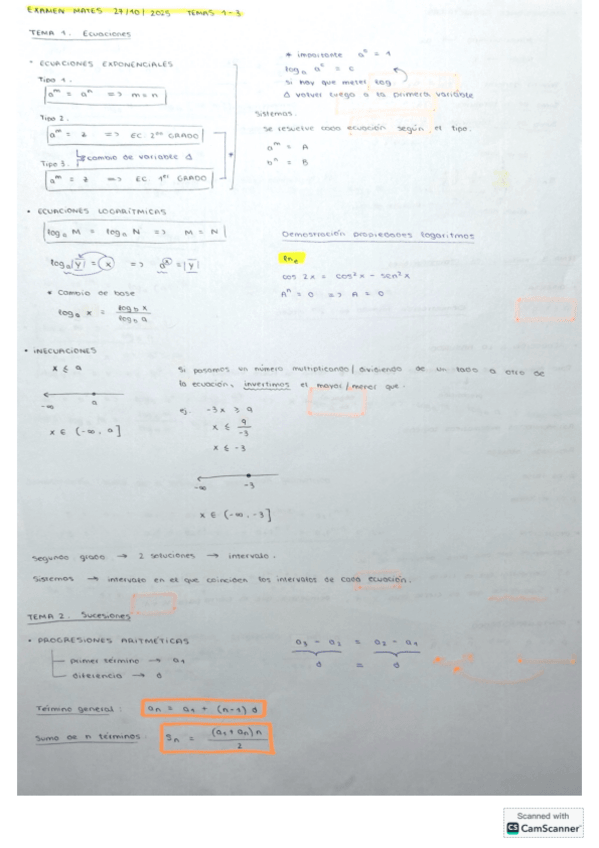 EXAMEN MATES 27/10/2025 TEMAS 1-3
TEMA 1. Ecuaciones
• ECUACIONES EXPONENCIALES
Tipo 1.
a^m = a^n => m = n
Tipo 2.
a^m = z => EC. 2º GRADO
cambio de variable Δ
Tipo 3.
a^m = z => EC 1er GRADO
* importante a^0 = 1
log_a a^c = c
si hay que meter log
Δ volver luego a la primera variable
Sistemas.
se resuelve cada ecuación según el tipo.
a^m = A
b^n = B
• ECUACIONES LOGARÍTMICAS
log_a M = log_a N => M = N
log_a y = x => a^x = y
* Cambio de base
log_a x = log_b x / log_b a
Demostración propiedades logaritmos
ln_e
cos 2x = cos²x - sen²x
A^n = 0 => A = 0
• INECUACIONES
x ≤ a
-∞ a
x ∈ (-∞, a]
Si pasamos un número multiplicando/dividiendo de un lado a otro de
la ecuación, invertimos el mayor/menor que.
ej. -3x ≥ 9
x ≤ 9/-3
x ≤ -3
-∞ -3
x ∈ (-∞, -3]
Segundo grado → 2 soluciones → intervalo.
Sistemas → intervalo en el que coinciden los intervalos de cada ecuación.
TEMA 2. Sucesiones
• PROGRESIONES ARITMÉTICAS
primer término → a₁
diferencia → d
a₃ - a₂ = a₂ - a₁
d = d
Término general: a_n = a₁ + (n-1) d
Suma de n términos: S_n = (a₁ + a_n) n / 2
Scanned with
CS CamScanner